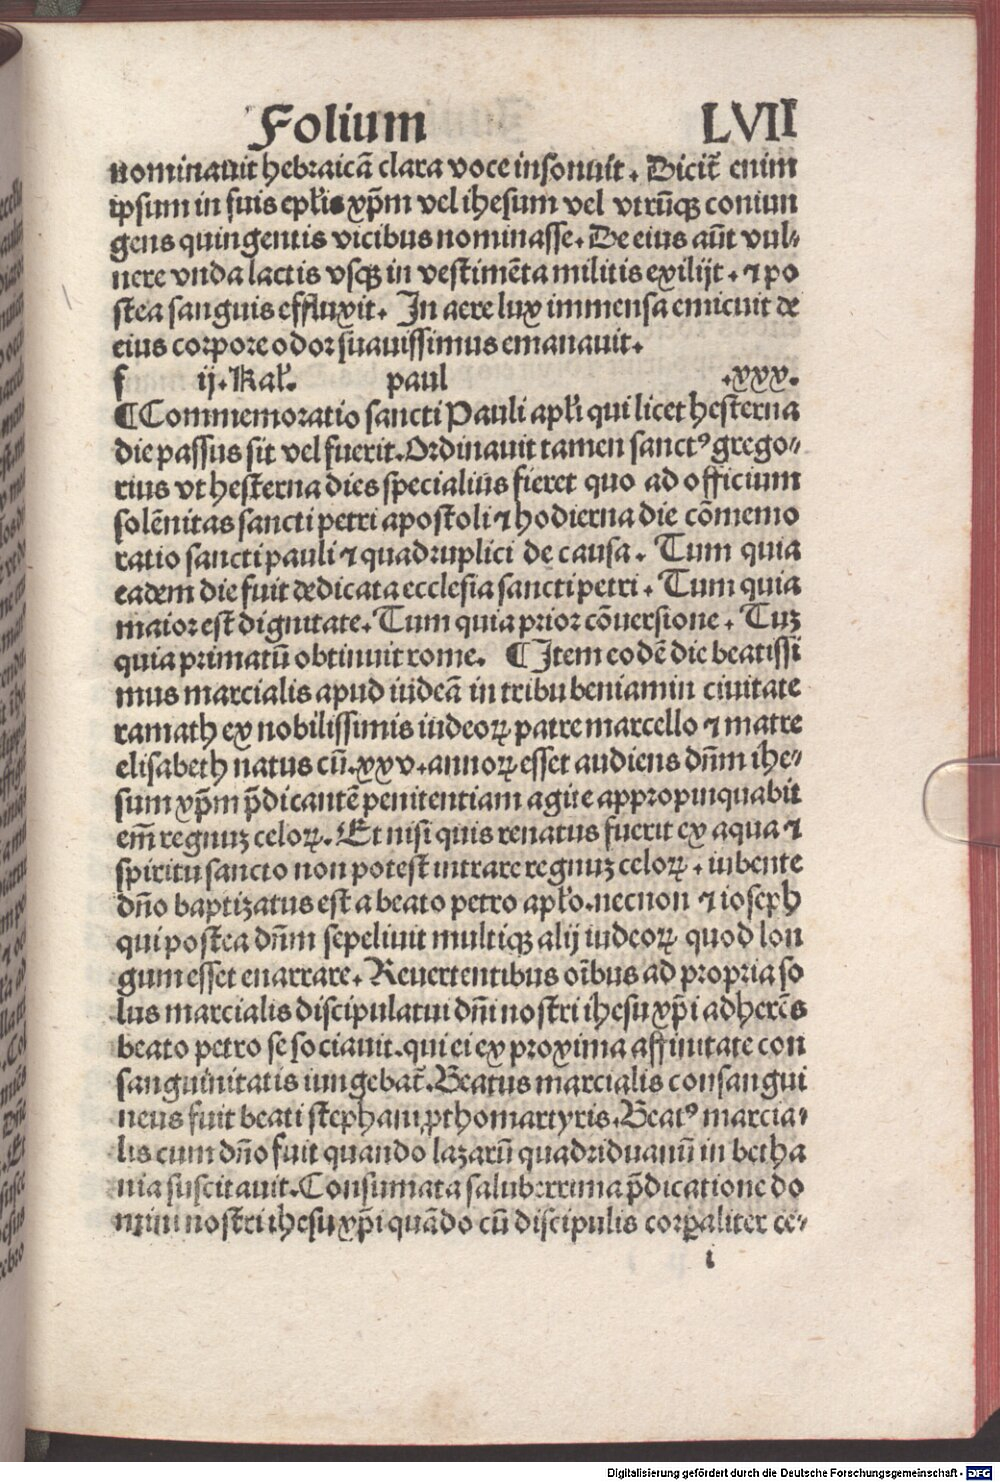 Folium LVII
nominauit hebraicā clara voce insonuit. Dicit̄ enim
ipsum in suis epl̄is xp̄m vel ihesum vel vtrūqꝫ coniun
gens quingentis vicibus nominasse. De eius aūt vul⸗
nere vnda lactis vsqꝫ in vestimēta militis exilijt. ⁊ po
stea sanguis effluxit. In aere lux immensa emicuit de
eius corpore odor suauissimus emanauit.
f ij. Kal̄. paul .xxx.
¶Commemoratio sancti Pauli apl̄i qui licet hesterna
die passus sit vel fuerit. Ordinauit tamen sanctꝰ grego⸗
rius vt hesterna dies specialius fieret quo ad officium
solēnitas sancti petri apostoli ⁊ hodierna die cōmemo
ratio sancti pauli ⁊ quadruplici de causa. Tum quia
eadem die fuit dedicata ecclesia sancti petri. Tum quia
maior est dignitate. Tum quia prior cōuersione. Tuꝫ
quia primatū obtinuit rome. ¶Item eodē die beatissi
mus marcialis apud iudeā in tribu beniamin ciuitate
ramath ex nobilissimis iudeoꝝ patre marcello ⁊ matre
elisabeth natus cū .xxv. annoꝝ esset audiens dn̄m ihe⸗
sum xp̄m p̄dicantē penitentiam agite appropinquabit
em̄ regnuꝫ celoꝝ. Et nisi quis renatus fuerit ex aqua ⁊
spiritu sancto non potest intrare regnuꝫ celoꝝ. iubente
dn̄o baptizatus est a beato petro apl̄o. necnon ⁊ ioseph
qui postea dn̄m sepeliuit multiqꝫ alij iudeoꝝ quod lon
gum esset enarrare. Reuertentibus oībus ad propria so
lus marcialis discipulatui dn̄i nostri ihesu xp̄i adherēs
beato petro se sociauit. qui ei ex proxima affinitate con
sanguinitatis iungebat̄. Beatus marcialis consangui
neus fuit beati stephani ꝓthomartyris. Beatꝰ marcia⸗
lis cum dn̄o fuit quando lazarū quadriduanū in betha
nia suscitauit. Consumata saluberrima p̄dicatione do
mini nostri ihesu xp̄i quādo cū discipulis corꝑaliter ce⸗
i
Digitalisierung gefördert durch die Deutsche Forschungsgemeinschaft - DFG